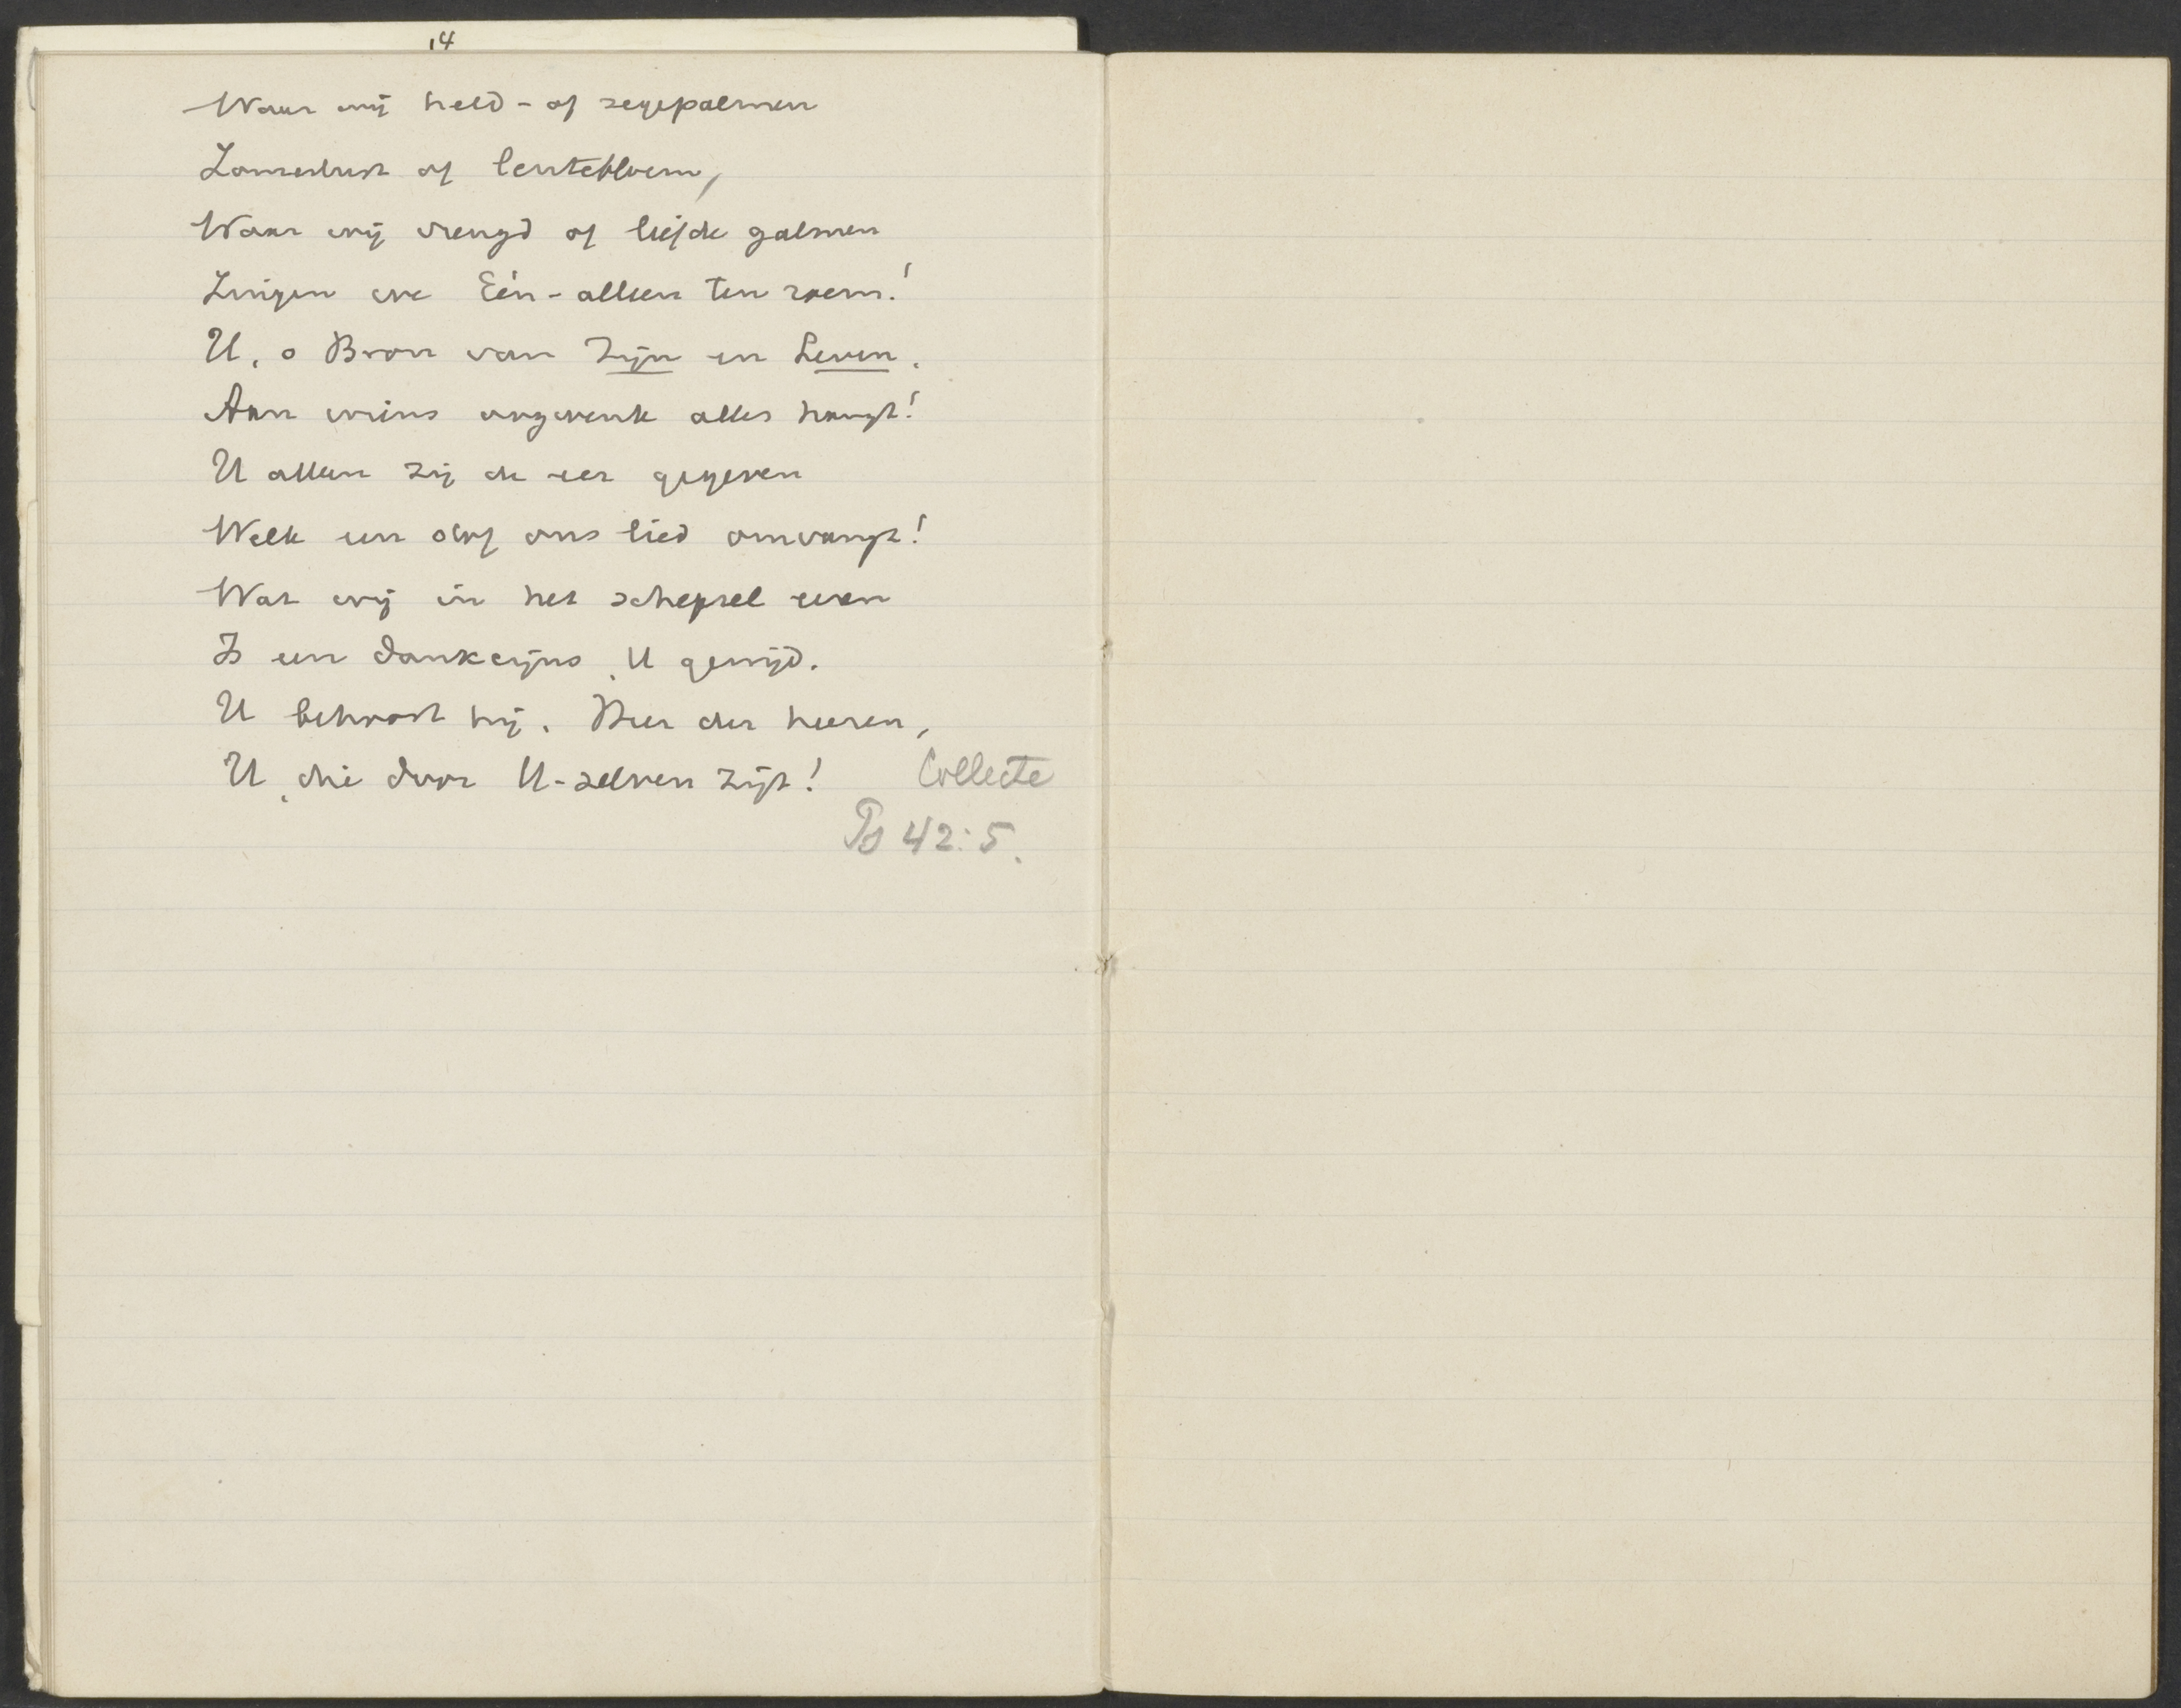 14
Waar wij held- of zegepalmen
Zomerlust of lentebloem,
Waar wij vreugd of liefde galmen
Zingen we Eén-alleen ten roem!
U, o Bron van Zijn en Leven,
Aan wiens oogwenk alles hangt!
U alleen zij de eer gegeven
Welk een stof ons lied omvangt!
Wat wij in het schepsel eren
Is een dankcijns, U gewijd.
U behoort hij, Heer der heeren,
U, die door U-zelven zijt!
Collecte
Ps 42:5.